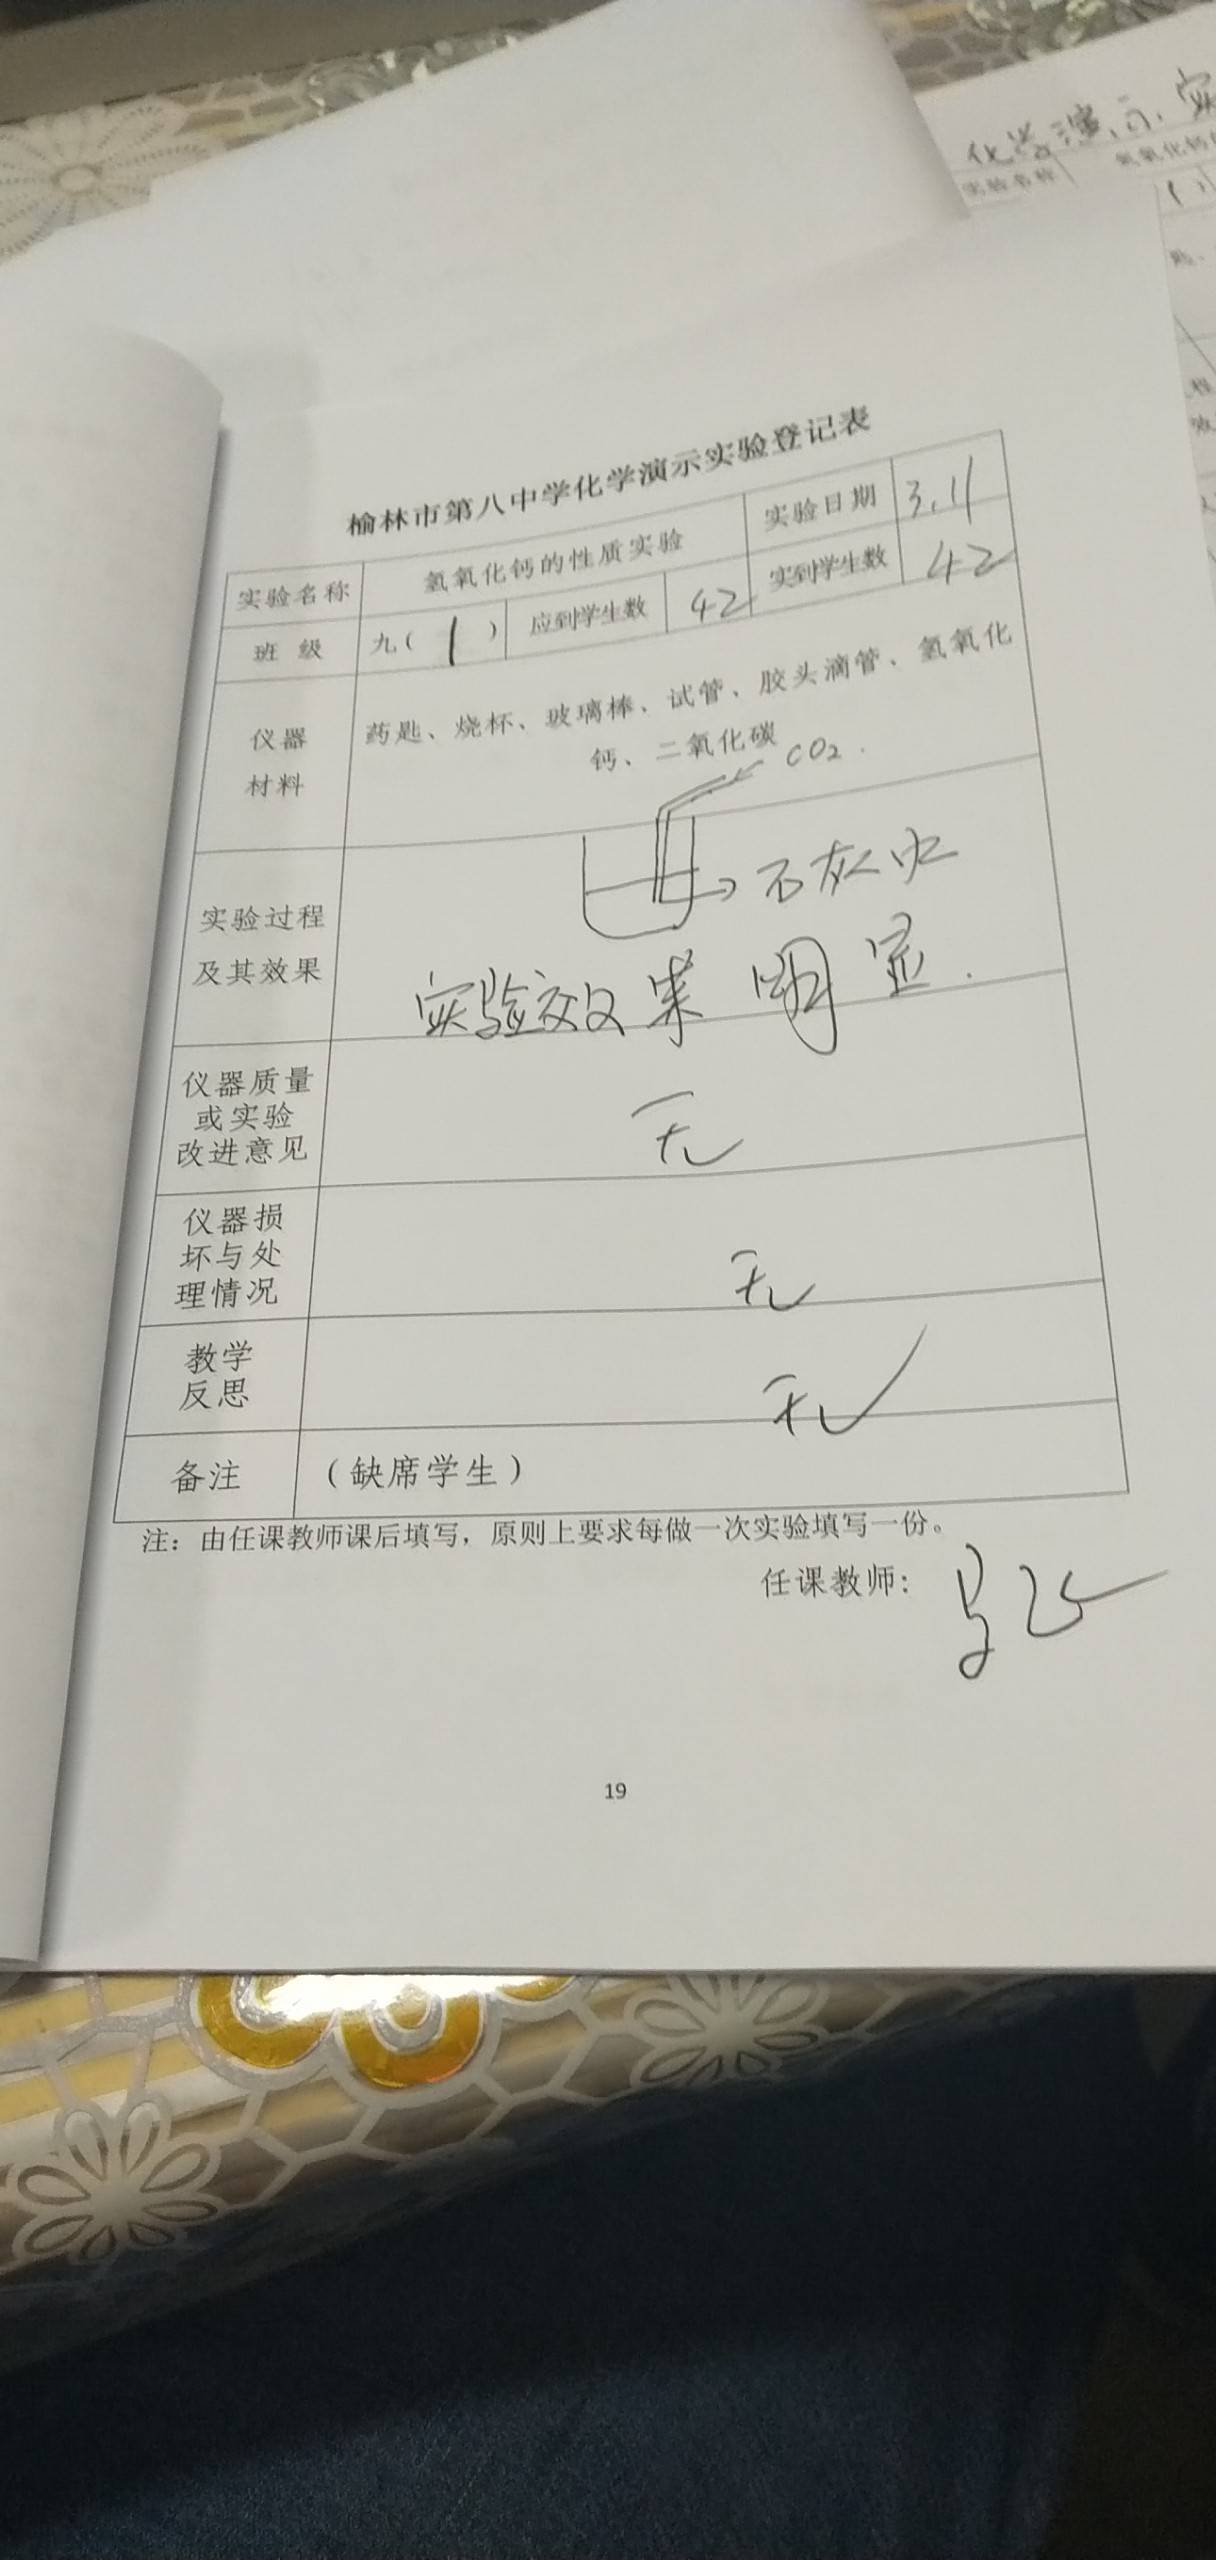 化学演示实
实验名称 氢氧化钙
榆林市第八中学化学演示实验登记表
实验名称 氢氧化钙的性质实验 实验日期 3.11
班 级 九( 1 ) 应到学生数 42 实到学生数 42
仪器
材料
药匙、烧杯、玻璃棒、试管、胶头滴管、氢氧化
钙、二氧化碳
CO2.
石灰水
实验过程
及其效果
实验效果明显.
仪器质量
或实验
改进意见
无
仪器损
坏与处
理情况
无
教学
反思
无
备注 (缺席学生)
注：由任课教师课后填写，原则上要求每做一次实验填写一份。
任课教师:
19